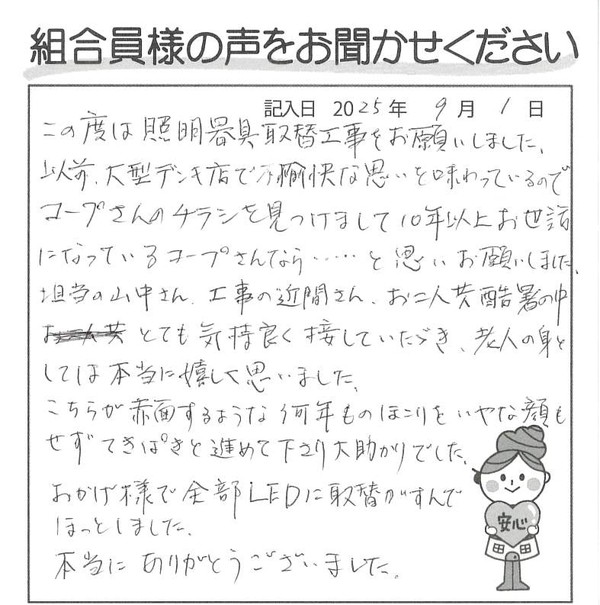 組合員様の声をお聞かせください
記入日 2025年 9月 1日
この度は照明器具取替工事をお願いしました、
以前、大型デンキ店で不愉快な思いを味わっているので
コープさんのチラシを見つけまして10年以上お世話
になっているコープさんなら……と思いお願いしました、
担当の山中さん、工事の近間さん、お二人共酷暑の中
とても気持良く接していただき、老人の身と
しては本当に嬉しく思いました、
こちらが赤面するような何年ものほこりをいやな顔も
せずてきぱきと進めて下さり大助かりでした、
おかげ様で全部LEDに取替がすんで
ほっとしました、
本当にありがとうございました。
安心